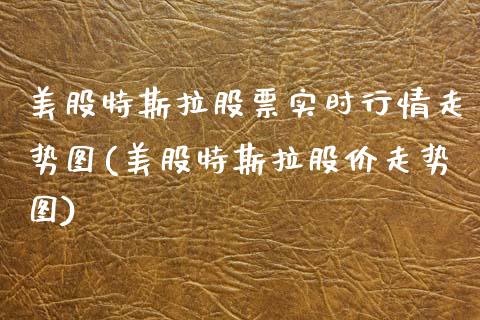 美股特斯拉股票实时行情走
势图(美股特斯拉股价走势
图)